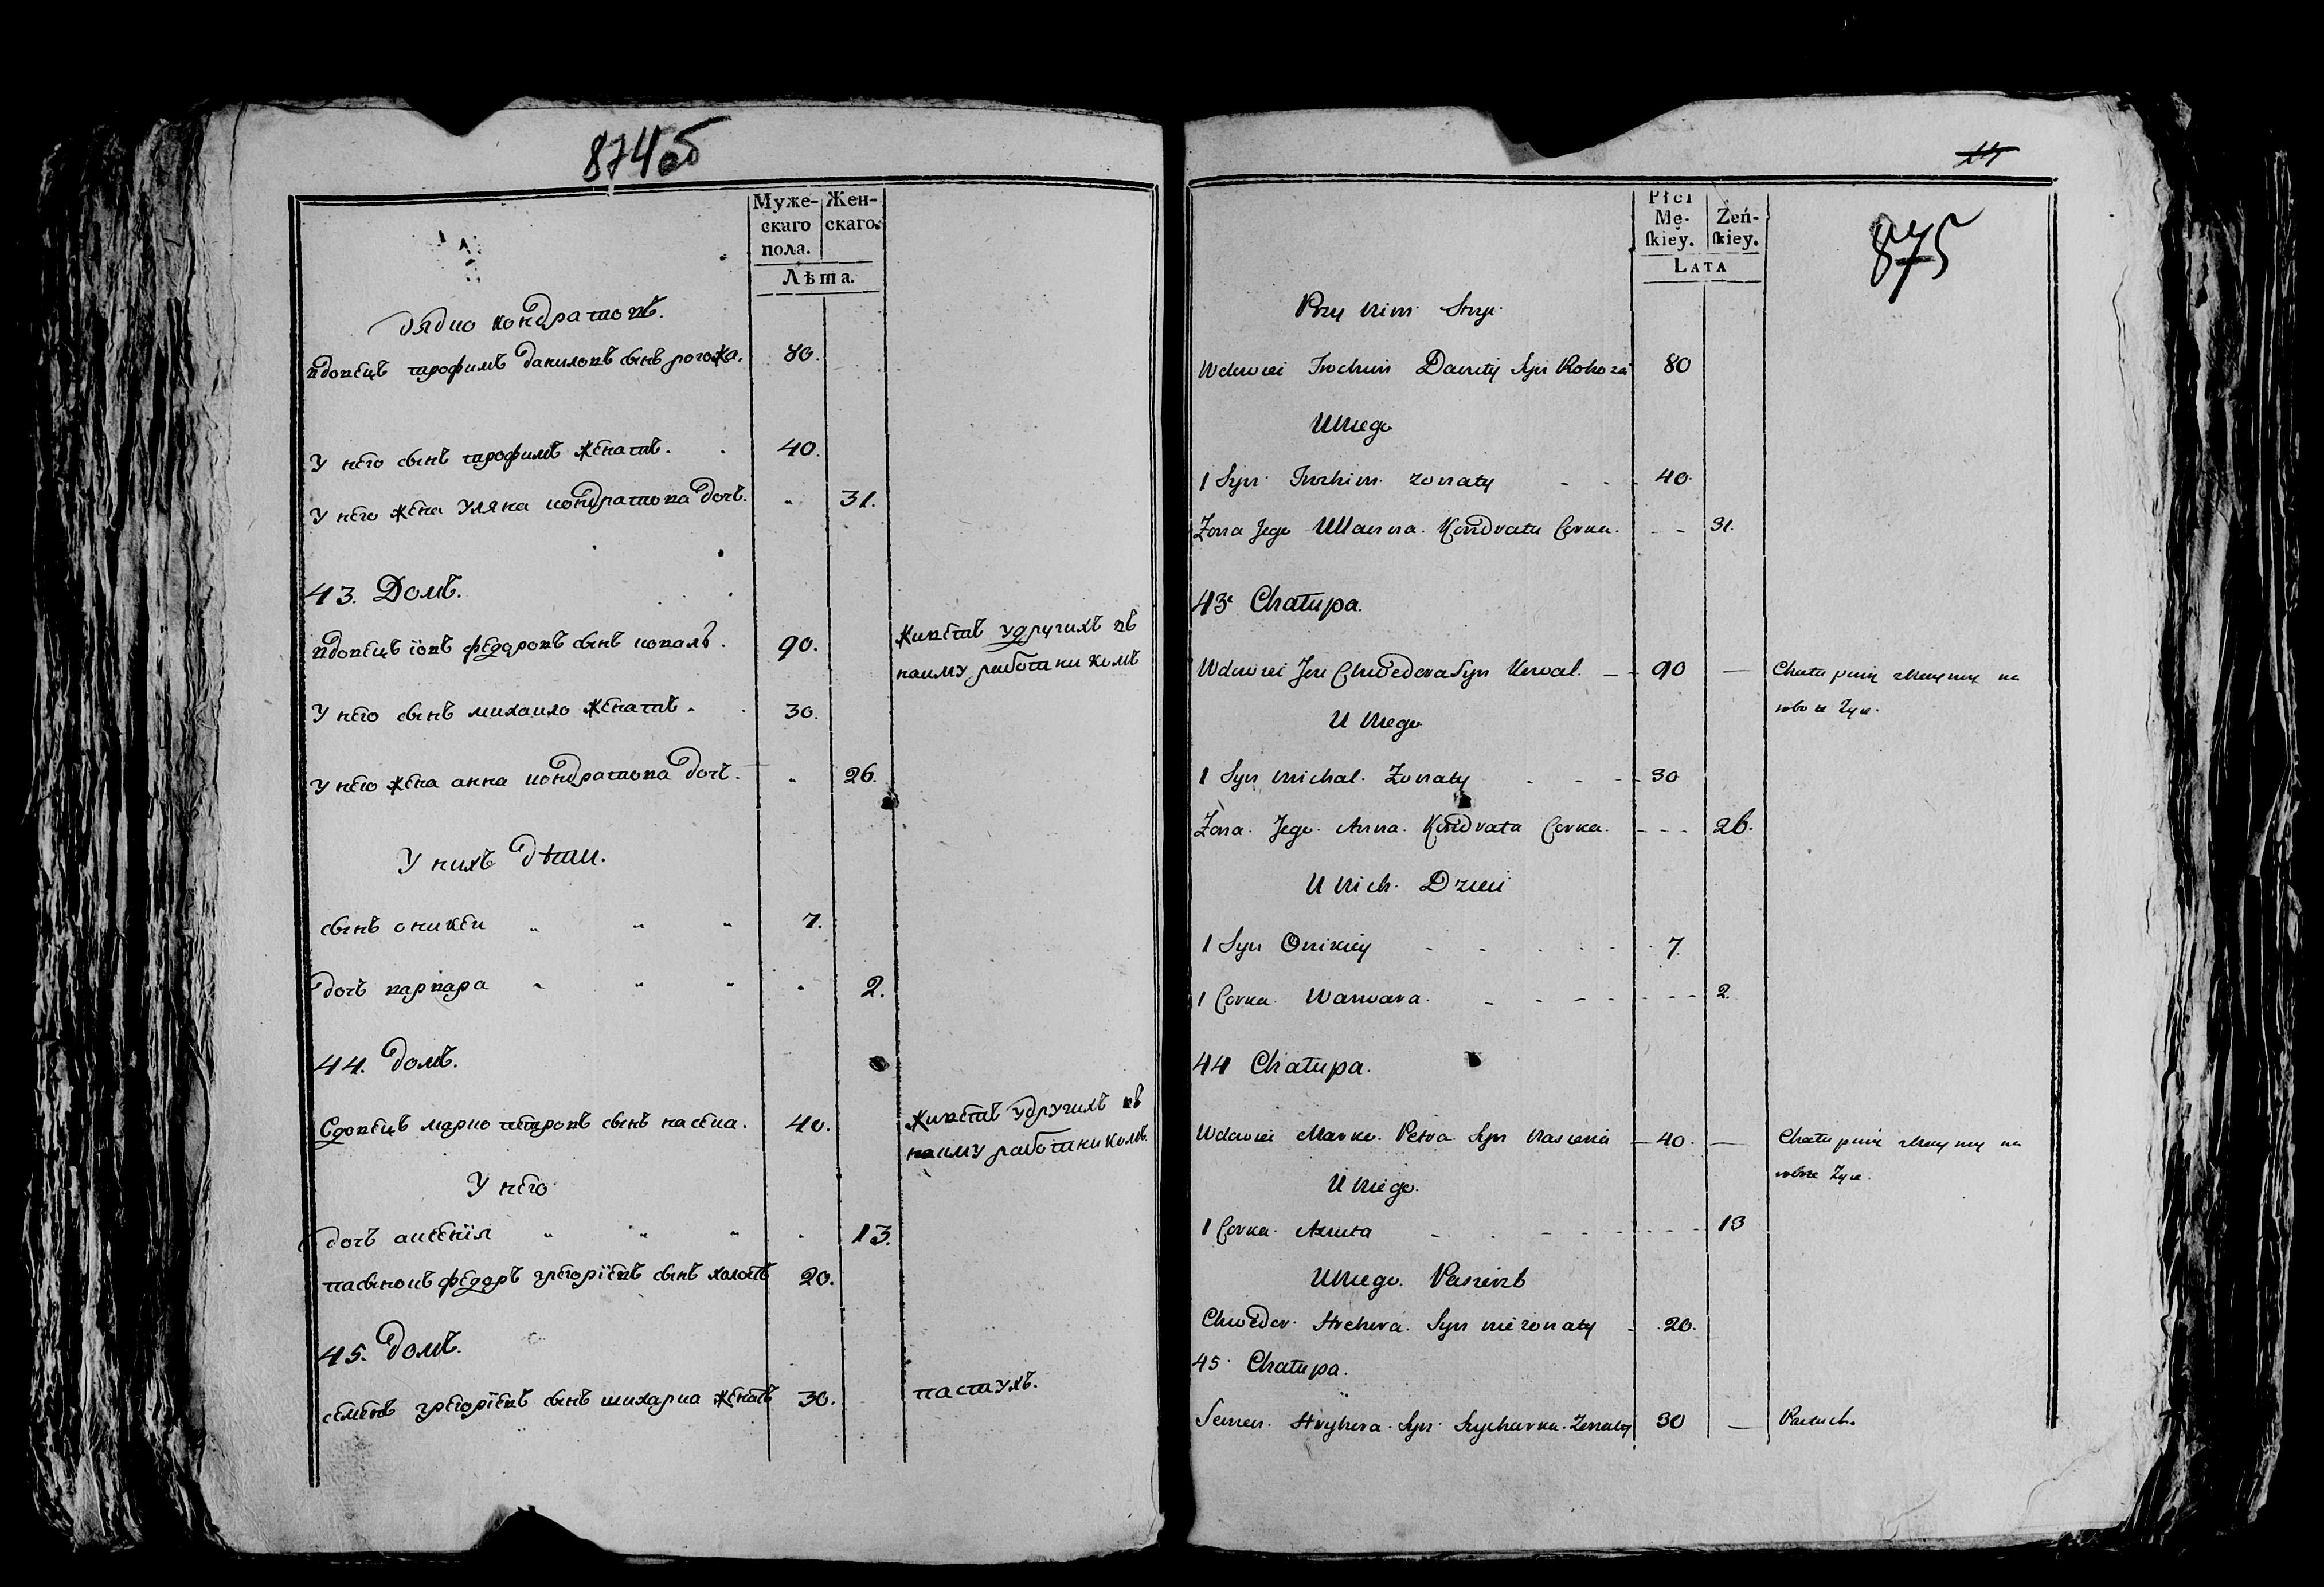 874об
Муже-
скаго
пола.
Жен-
скаго.
Лѣта.
дядко кондратовъ.
вдовецъ трофимъ даниловъ сынъ рогожа. 80.
У него сынъ трофимъ женатъ. 40.
У него жена уляна кондратова дочь. 31.
43. Домъ.
вдовецъ іовъ федоровъ сынъ коваль. 90. живетъ удругихъ въ
наиму работникомъ
У него сынъ михаило женатъ. 30.
У него жена анна кондратова дочь. 26.
У нихъ дѣти.
сынъ оникеи 7.
дочь варвара 2.
44. домъ.
вдовецъ марко петровъ сынъ 40. живетъ удругихъ въ
наиму работникомъ.
У него
дочь аксенія 13.
пасынокъ федоръ грегоріевъ сынъ холостъ 20.
45. домъ.
семенъ грегоріевъ сынъ шихарка женатъ 30. пастухъ.
Płci
Mę-
skiey.
Żeń-
skiey.
LATA
875
Przy nim Stryi
Wdowiei Trochim Daniły Syn Rohoza 80
U niego
1 Syn Trochim zonaty 40.
Zona Jego Ullanna Kondrata Corka. 31.
43 Chałupa.
Wdowiei Jew Chwedora Syn Kowal. 90 Chałupnik
Zyie.
U niego
1 Syn Michal. Zonaty 30
Zona Jego Anna Kondrata Corka. 26.
U nich Dzieci
1 Syn Onikiey 7.
1 Corka Warwara. 2.
44 Chałupa.
Wdowiei Marko Petra Syn 40. Chałupnik
Zyie.
U niego.
1 Corka 13
U niego Pasierb
Chwedor Hrehora Syn niezonaty 20.
45 Chałupa.
Semen Hryhora Syn Szycharka Zonaty 30 Pastuch.